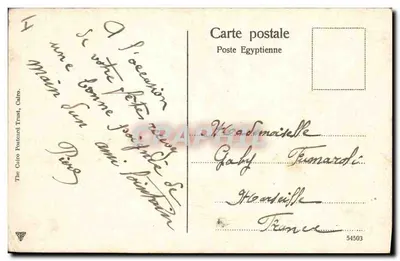 Carte postale
Poste Egyptienne
A l'occasion
de votre fête recevez
une bonne poignée de
main d'un ami lointain
Mademoiselle
Gaby Fumaroli
Marseille
France
The Cairo Postcard Trust, Cairo.
54503